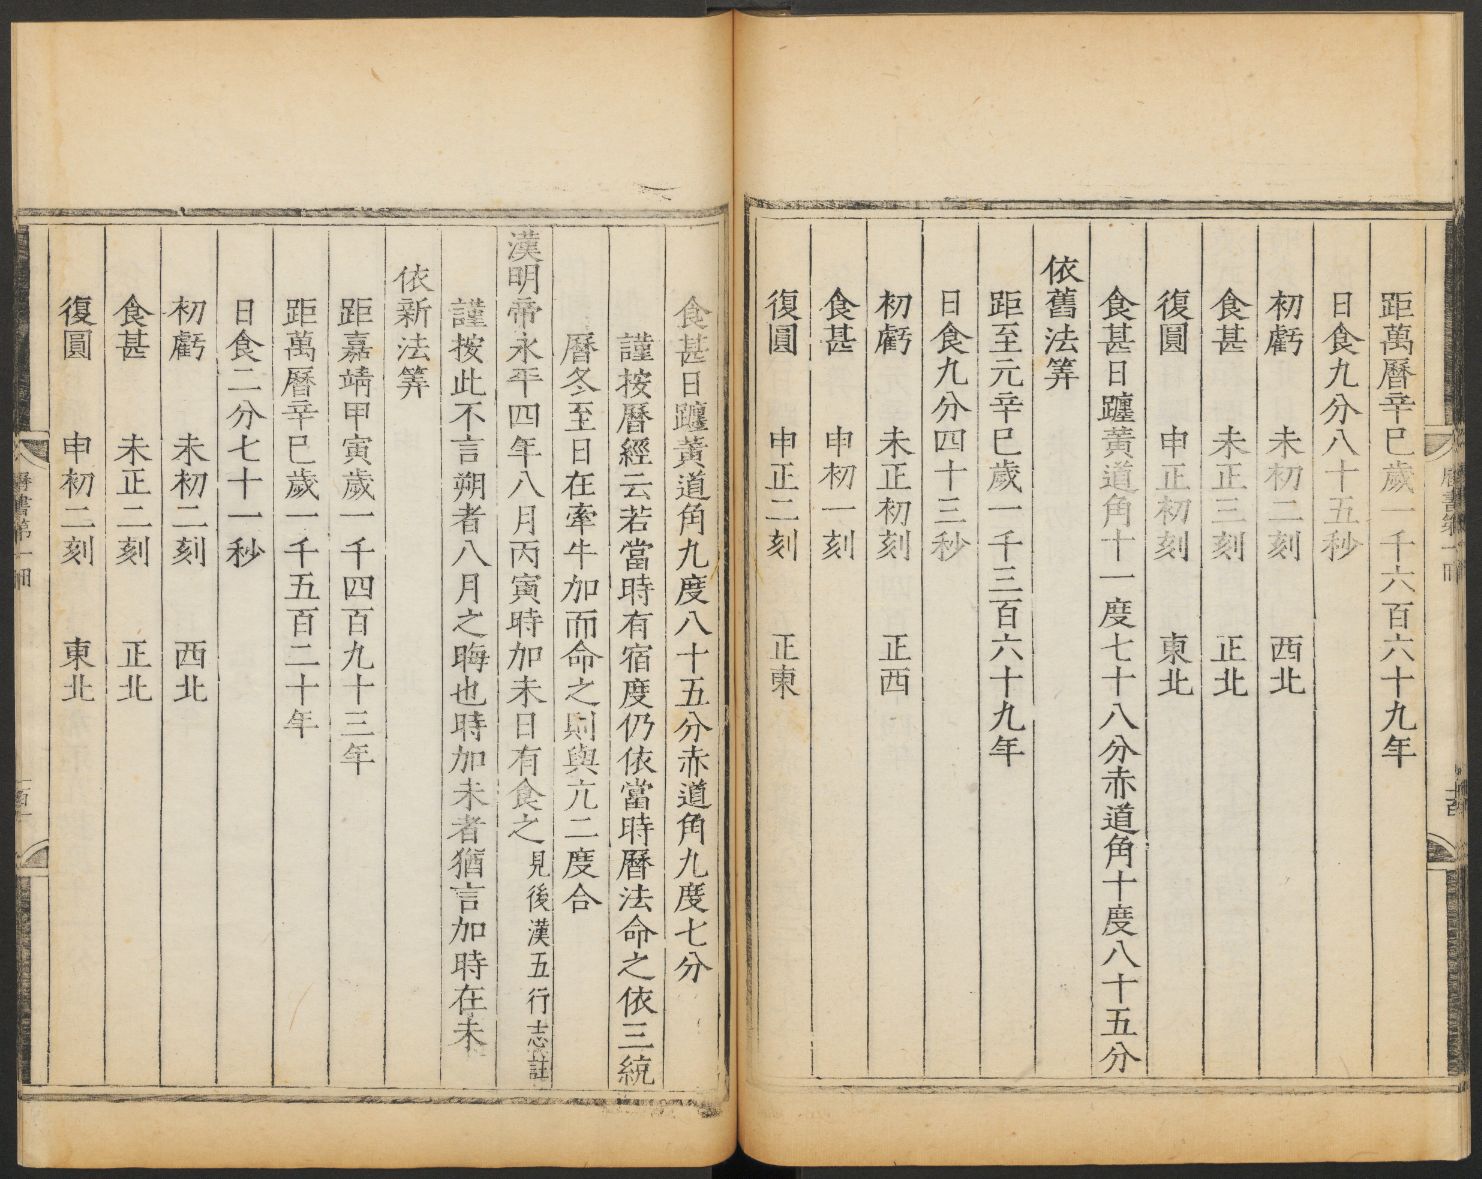 距萬曆辛巳歲一千六百六十九年
日食九分八十五秒
初虧　未初二刻　西北
食甚　未正三刻　正北
復圓　申正初刻　東北
食甚日躔黃道角十一度七十八分赤道角十度八十五分
依舊法筭
距至元辛巳歲一千三百六十九年
日食九分四十三秒
初虧　未正初刻　正西
食甚　申初一刻
復圓　申正二刻　正東
食甚日躔黃道角九度八十五分赤道角九度七分
謹按曆經云若當時有宿度仍依當時曆法命之依三統
曆冬至日在牽牛加而命之則與亢二度合
漢明帝永平四年八月丙寅時加未日有食之見後漢五行志註
謹按此不言朔者八月之晦也時加未者猶言加時在未
依新法筭
距嘉靖甲寅歲一千四百九十三年
距萬曆辛巳歲一千五百二十年
日食二分七十一秒
初虧　未初二刻　西北
食甚　未正二刻　正北
復圓　申初二刻　東北
曆書第一冊